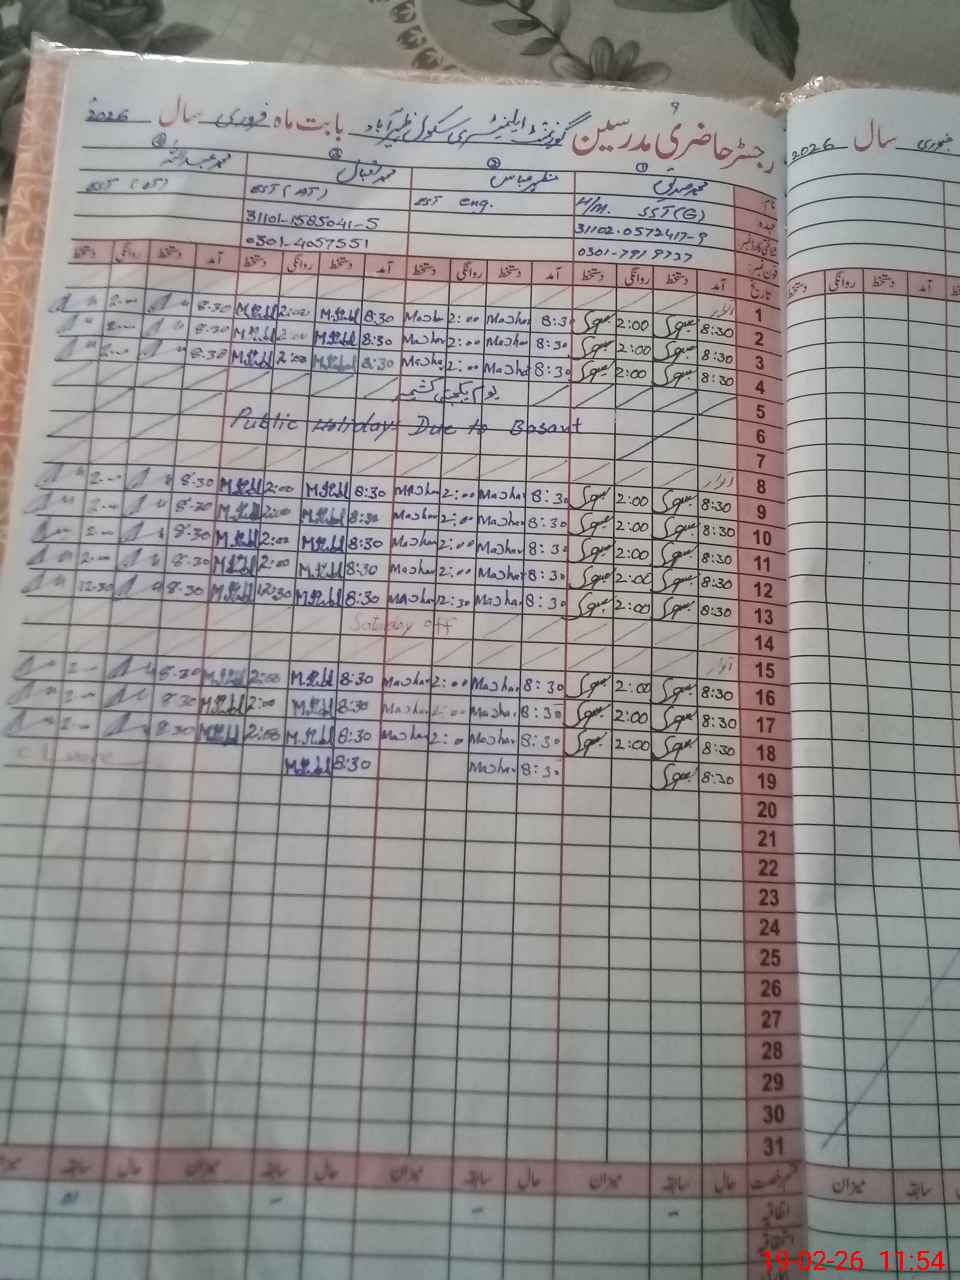 رجسٹر حاضری مدرسین گورنمنٹ ایلیمنٹری سکول ظہیر آباد بابت ماہ فروری سال 2026
جنوری سال 2026
① ② ③ ④
نام: محمد صدیق مظہر عباس محمد اقبال محمد عبداللہ
عہدہ H/M. SST(G) EST eng. EST (AT) EST (OT)
شناختی کارڈ نمبر 31102-0572417-9 31101-1585041-5
فون نمبر: 0301-7919737 0301-4057551
تاریخ آمد دستخط روانگی دستخط آمد دستخط روانگی دستخط آمد دستخط روانگی دستخط آمد دستخط روانگی دستخط
روانگی دستخط آمد
1 اتوار
2 8:30 2:00 8:30 Mazhar 2:00 Mazhar 8:30 M.Iqbal 2:00 M.Iqbal 8:30 2:00
3 8:30 2:00 8:30 Mazhar 2:00 Mazhar 8:30 M.Iqbal 2:00 M.Iqbal 8:30 2:00
4 8:30 2:00 8:30 Mazhar 2:00 Mazhar 8:30 M.Iqbal 2:00 M.Iqbal 8:30 2:00
5 یوم یکجہتی کشمیر
6 Public Holiday Due to Basant
7
8 اتوار
9 8:30 2:00 8:30 Mazhar 2:00 Mazhar 8:30 M.Iqbal 2:00 M.Iqbal 8:30 2:00
10 8:30 2:00 8:30 Mazhar 2:00 Mazhar 8:30 M.Iqbal 2:00 M.Iqbal 8:30 2:00
11 8:30 2:00 8:30 Mazhar 2:00 Mazhar 8:30 M.Iqbal 2:00 M.Iqbal 8:30 2:00
12 8:30 2:00 8:30 Mazhar 2:00 Mazhar 8:30 M.Iqbal 2:00 M.Iqbal 8:30 2:00
13 8:30 2:00 8:30 Mazhar 12:30 Mazhar 8:30 M.Iqbal 12:30 M.Iqbal 8:30 12:30
14 Saturday off
15 اتوار
16 8:30 2:00 8:30 Mazhar 2:00 Mazhar 8:30 M.Iqbal 2:00 M.Iqbal 8:30 2:00
17 8:30 2:00 8:30 Mazhar 2:00 Mazhar 8:30 M.Iqbal 2:00 M.Iqbal 8:30 2:00
18 8:30 2:00 8:30 Mazhar 2:00 Mazhar 8:30 M.Iqbal 2:00 M.Iqbal 8:30 2:00
19 8:30 8:30 Mazhar 8:30 M.Iqbal
20
21
22
23
24
25
26
27
28
29
30
31
قسم رخصت حال سابقہ میزان حال سابقہ میزان حال سابقہ میزان حال سابقہ میزان
سابقہ میزان
اتفاقیہ
19-02-26 11:54